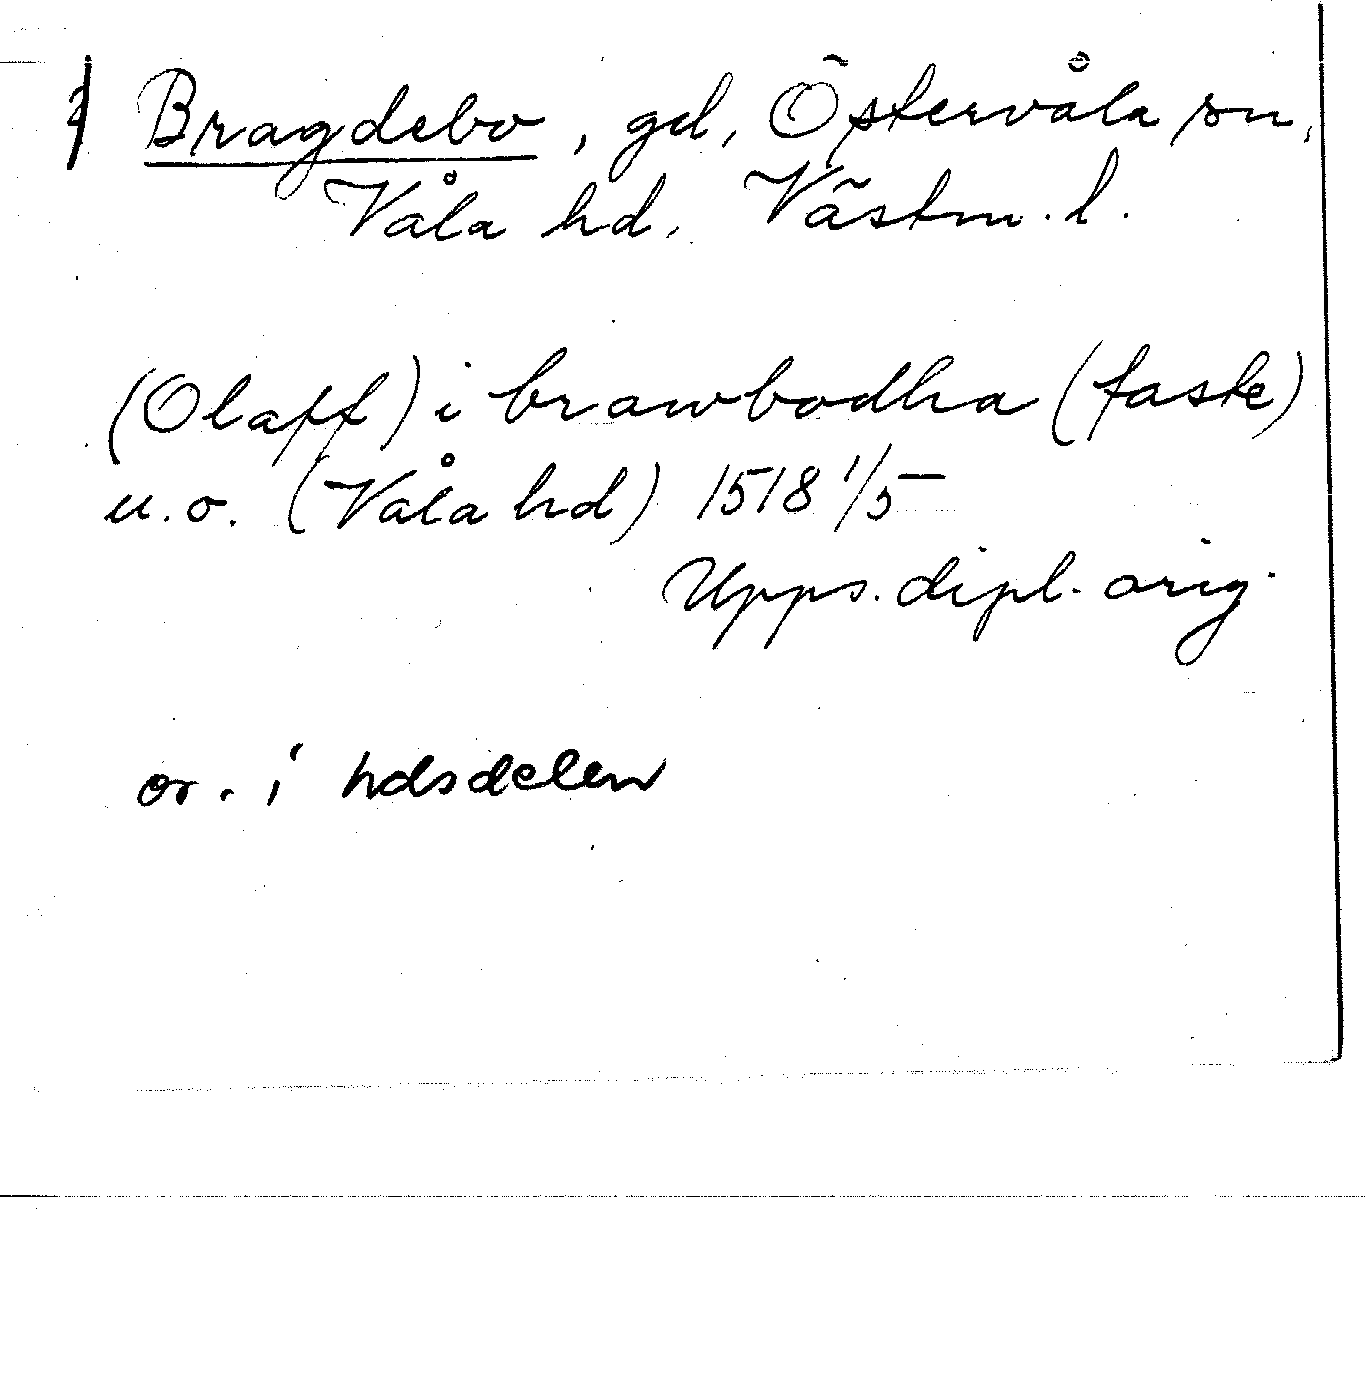 Bragdebo, gd, Östervåla sn,
Våla hd, Västm. l.
(Olaff) i brawbodha (faste)
u.o. (Våla hd) 1518 1/5
Upps. dipl. orig.
or. i hdsdelen